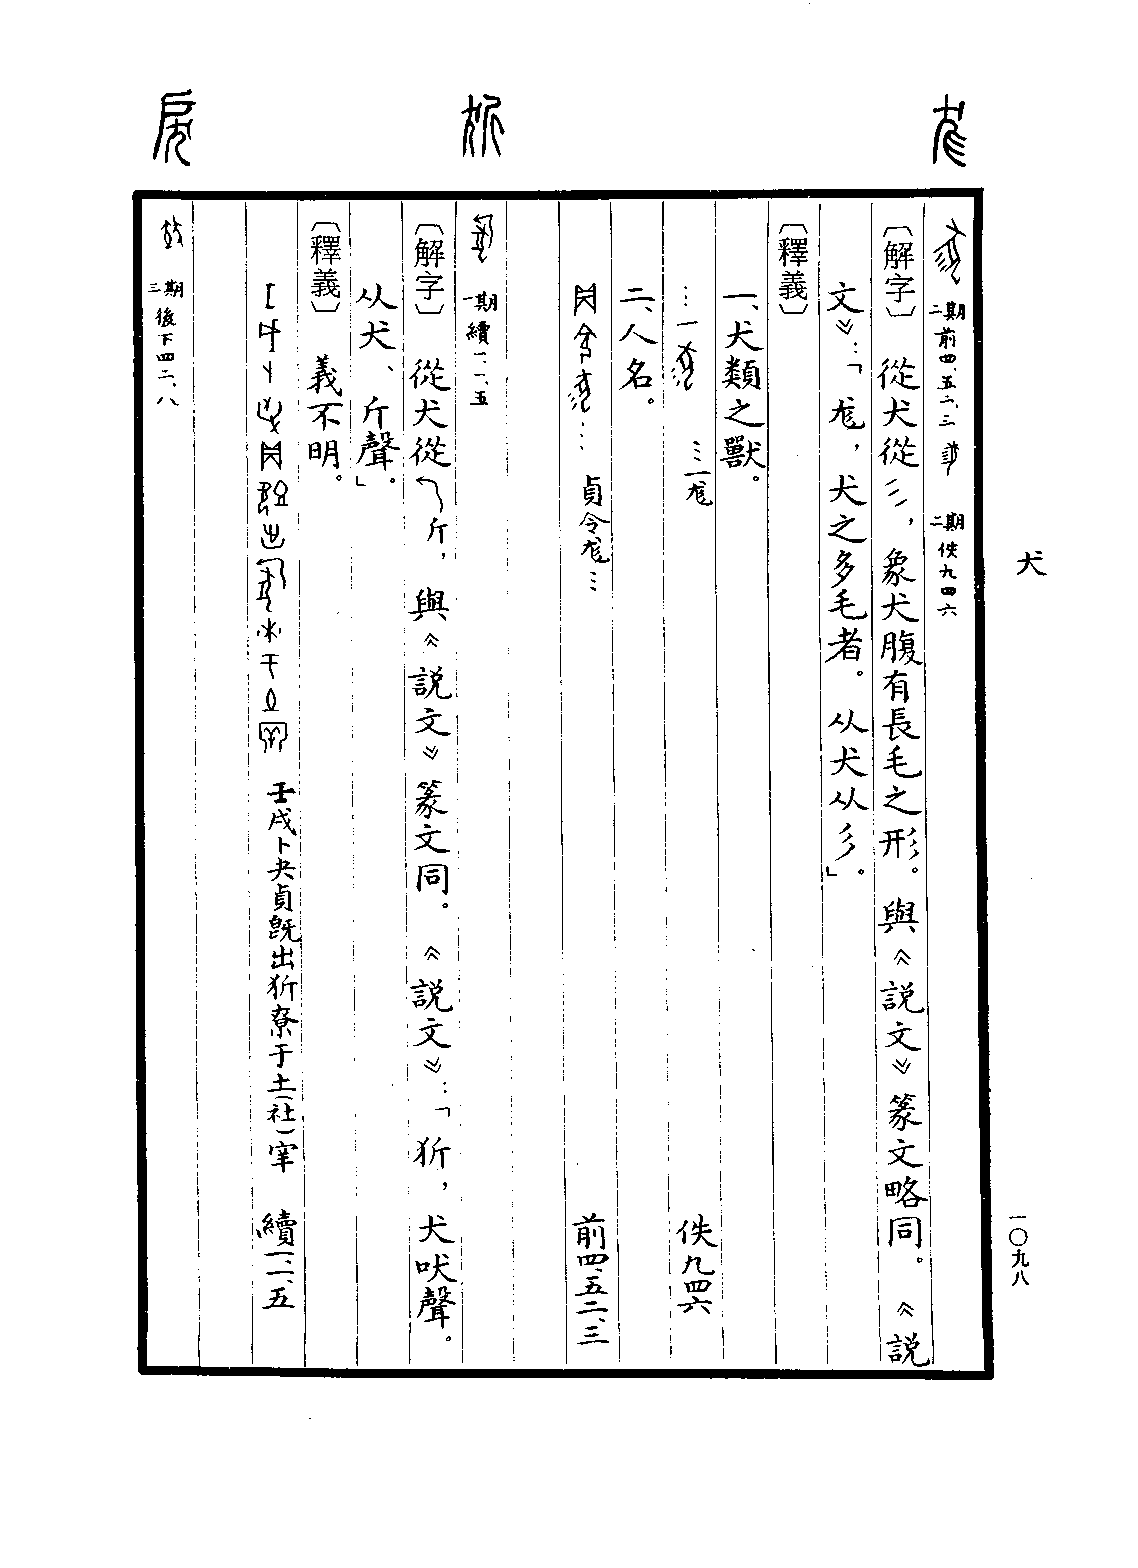 犬
一〇九八
尨
二期 前四、五二、三
二期 佚九四六
〔解字〕 從犬從彡，象犬腹有長毛之形。與《説文》篆文略同。《説
文》：「尨，犬之多毛者。从犬从彡。」
〔釋義〕
一、犬類之獸。
…一 …一尨 佚九四六
二、人名。
… 貞令尨… 前四、五二、三
狾
一期 續一、一、五
〔解字〕 從犬從斤，與《説文》篆文同。《説文》：「㹞，犬吠聲。
从犬、斤聲。」
〔釋義〕 義不明。
壬戌卜夬貞既出㹞尞于土（社）宰 續一、一、五
三期 後下四二、八